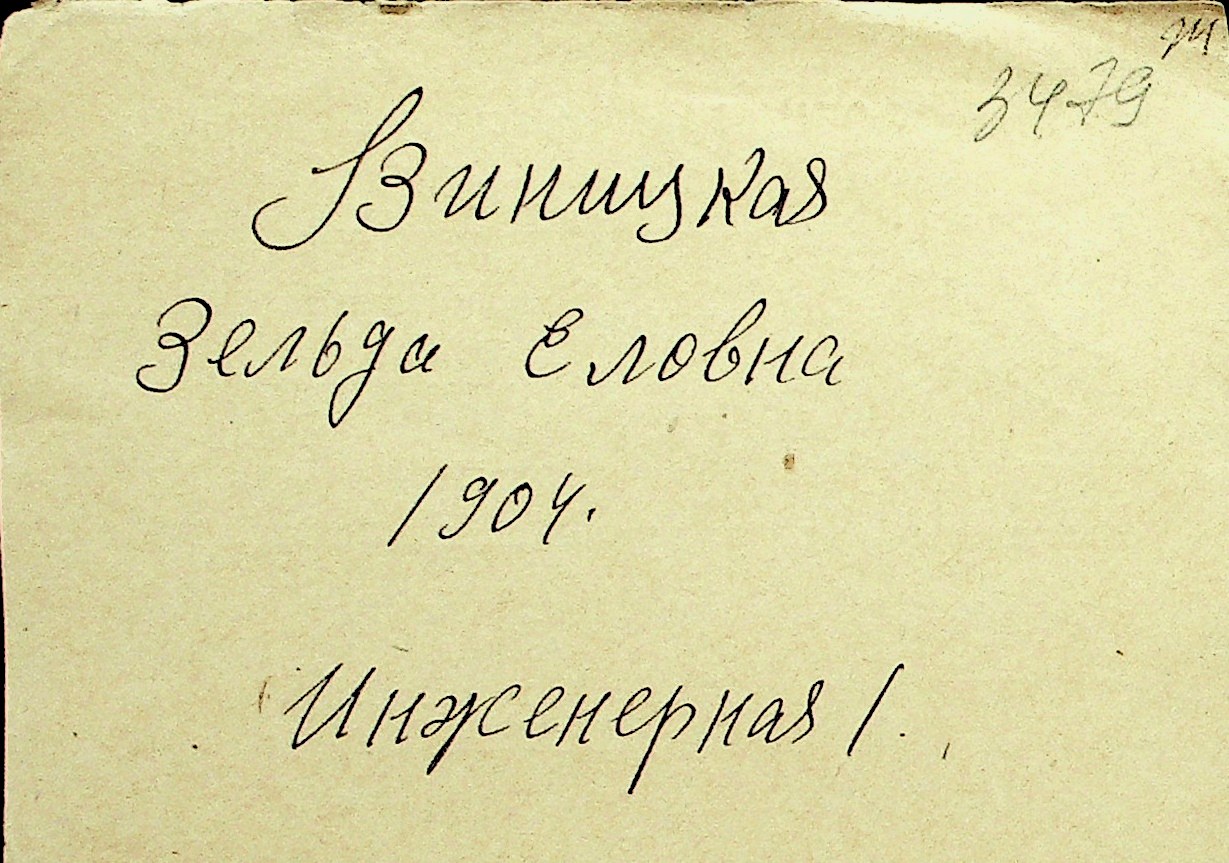 3479
Виницкая
Зельда Еловна
1904.
Инженерная 1.